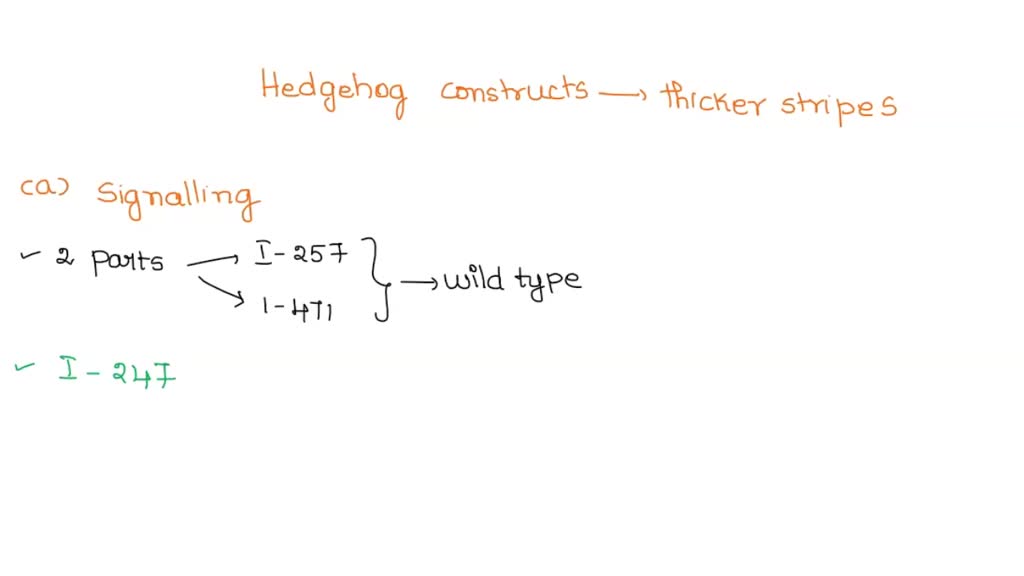 Hedgehog constructs → thicker stripes
(a) Signalling
✓ 2 parts → I-257
→ 1-471
} → wild type
✓ I-247